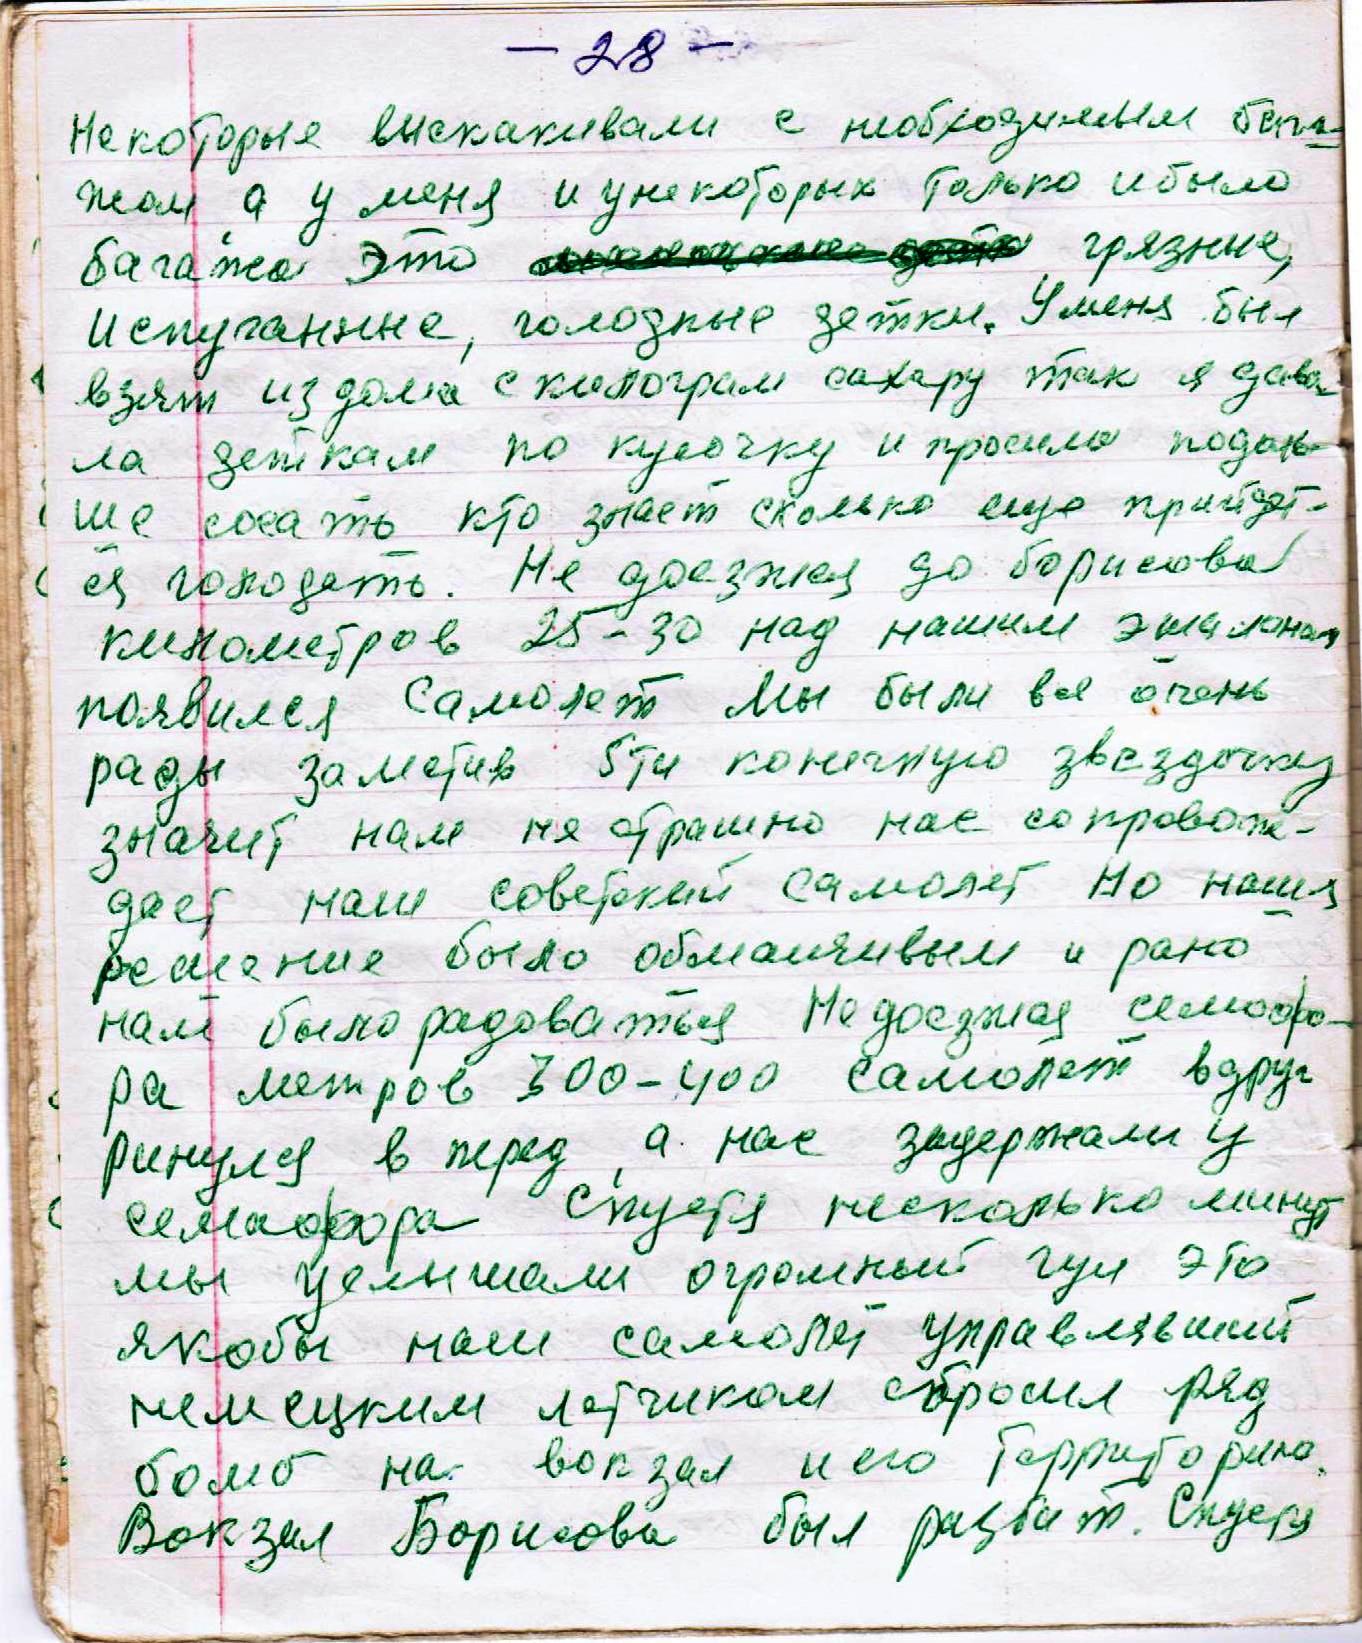 - 28 -
Некоторые выскакивали с необходимым бага-
жом, а у меня и у некоторых только и было
багажа это грязные,
испуганные, голодные детки. У меня был
взят из дома с килограм сахару так я дава-
ла деткам по кусочку и просила подоль-
ше сосать кто знает сколько еще прийдет-
ся голодать. Не доезжая до борисова
километров 25-30 над нашим эшалоном
появился самолет Мы были все очень
рады заметив 5ти конечную звездочку
значит нам не страшно нас сопровож-
дает наш советский самолет Но наше
решение было обманчивым и рано
нам было радоваться Не доезжая семофо-
ра метров 300-400 самолет вдруг
ринулся в перед, а нас задержали у
семафора Спустя несколько минут
мы услышали огромный гул это
якобы наш самолет управлявший
немецким летчиком сбросил ряд
бомб на вокзал и его территорию.
Вокзал Борисова был разбит. Спустя